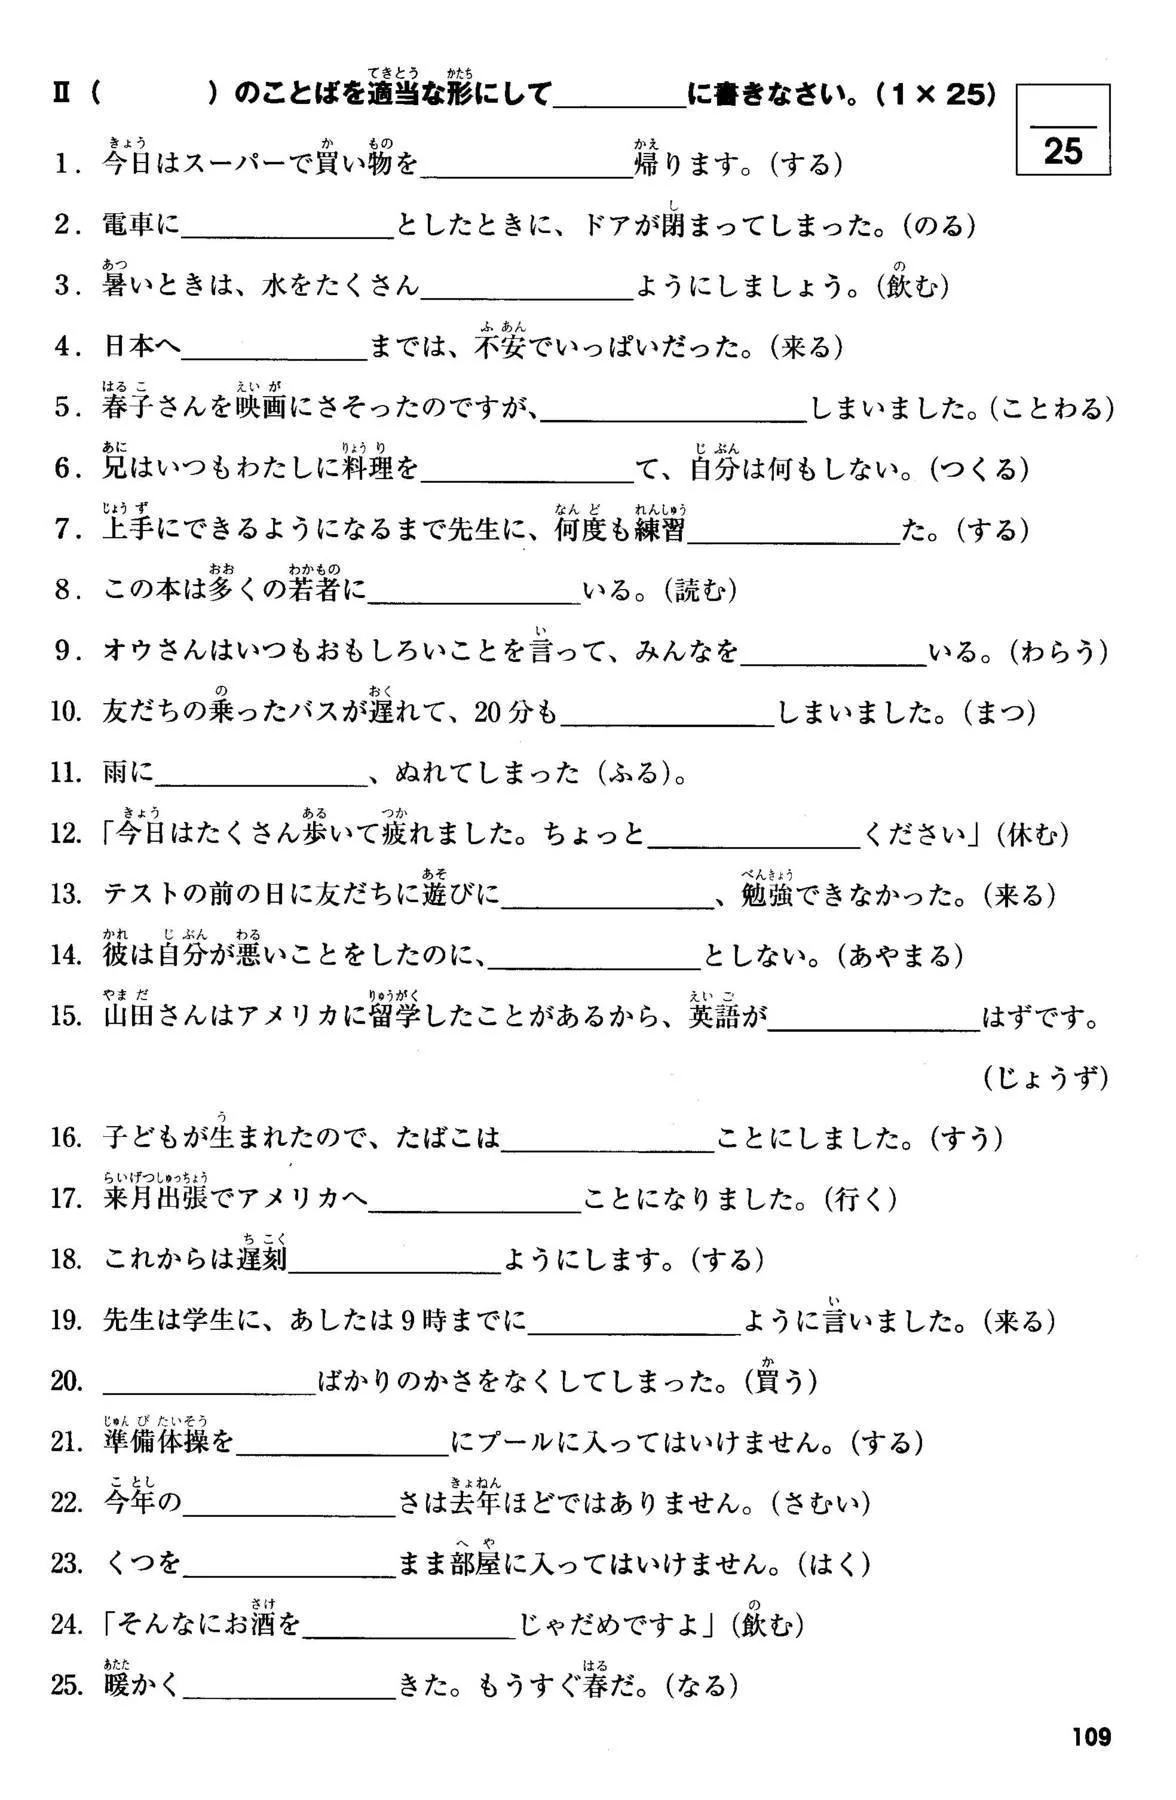 Ⅱ（　　　　）のことばを適当な形にして＿＿＿＿＿に書きなさい。（1×25）
25
1. 今日はスーパーで買い物を＿＿＿＿＿＿＿＿帰ります。（する）
2. 電車に＿＿＿＿＿＿＿＿としたときに、ドアが閉まってしまった。（のる）
3. 暑いときは、水をたくさん＿＿＿＿＿＿＿＿ようにしましょう。（飲む）
4. 日本へ＿＿＿＿＿＿＿までは、不安でいっぱいだった。（来る）
5. 春子さんを映画にさそったのですが、＿＿＿＿＿＿＿＿＿＿しまいました。（ことわる）
6. 兄はいつもわたしに料理を＿＿＿＿＿＿＿＿て、自分は何もしない。（つくる）
7. 上手にできるようになるまで先生に、何度も練習＿＿＿＿＿＿＿＿た。（する）
8. この本は多くの若者に＿＿＿＿＿＿＿＿いる。（読む）
9. オウさんはいつもおもしろいことを言って、みんなを＿＿＿＿＿＿＿いる。（わらう）
10. 友だちの乗ったバスが遅れて、20分も＿＿＿＿＿＿＿＿しまいました。（まつ）
11. 雨に＿＿＿＿＿＿＿＿、ぬれてしまった（ふる）。
12.「今日はたくさん歩いて疲れました。ちょっと＿＿＿＿＿＿＿＿ください」（休む）
13. テストの前の日に友だちに遊びに＿＿＿＿＿＿＿＿、勉強できなかった。（来る）
14. 彼は自分が悪いことをしたのに、＿＿＿＿＿＿＿＿としない。（あやまる）
15. 山田さんはアメリカに留学したことがあるから、英語が＿＿＿＿＿＿＿＿はずです。
（じょうず）
16. 子どもが生まれたので、たばこは＿＿＿＿＿＿＿＿ことにしました。（すう）
17. 来月出張でアメリカへ＿＿＿＿＿＿＿＿ことになりました。（行く）
18. これからは遅刻＿＿＿＿＿＿＿＿ようにします。（する）
19. 先生は学生に、あしたは9時までに＿＿＿＿＿＿＿＿ように言いました。（来る）
20. ＿＿＿＿＿＿＿＿ばかりのかさをなくしてしまった。（買う）
21. 準備体操を＿＿＿＿＿＿＿＿にプールに入ってはいけません。（する）
22. 今年の＿＿＿＿＿＿＿＿さは去年ほどではありません。（さむい）
23. くつを＿＿＿＿＿＿＿＿まま部屋に入ってはいけません。（はく）
24.「そんなにお酒を＿＿＿＿＿＿＿＿じゃだめですよ」（飲む）
25. 暖かく＿＿＿＿＿＿＿＿きた。もうすぐ春だ。（なる）
109